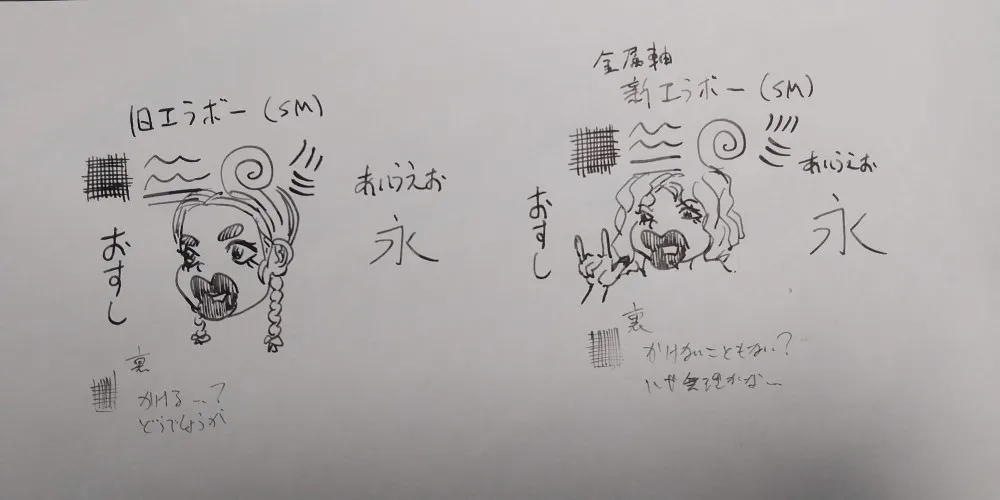 旧エラボー(SM)
あいうえお
永
おすし
裏
かける…?
どうでしょうか
金属軸
新エラボー(SM)
あいうえお
永
おすし
裏
かけないこともない?
いや無理かな…